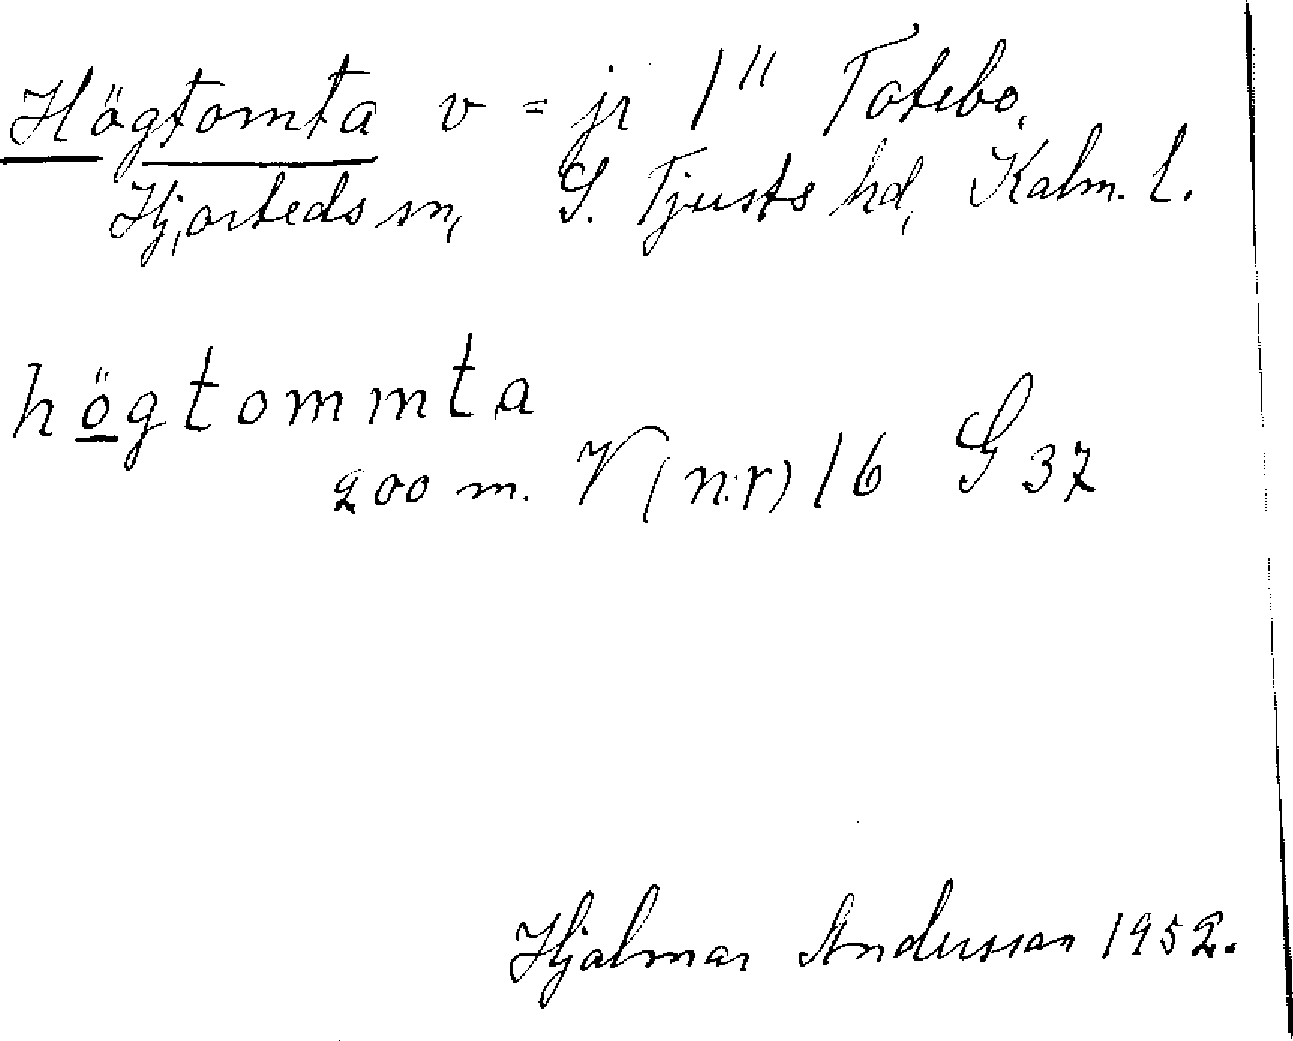 Högtomta v = jr 1" Totebo,
Hjorteds sn, S. Tjusts hd, Kalm. l.
högtommta
200 m. V (n:r) 16 G 37
Hjalmar Andersson 1952.